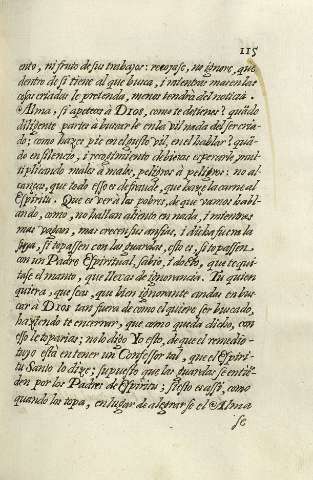 115
ento, ni fruto de sus trabajos: recojase, no ignore, que
dentro de si tiene al que busca, i mientras mas en las
cosas criadas le pretenda, menos tendrà del noticia.
Alma, si apeteces à Dios, como te detienes? quãdo
diligente partes à buscarle en la vil nada del ser cria-
do; como hazes pie en el gusto vil, en el hablar? quã-
do en silencio, i recogimiento debieras esperarle, mul-
tiplicando males à males, peligros à peligros: no al-
canças, que todo esso es de fraude, que haze la carne al
Espiritu. Que es ver à los pobres, de que vamos habl-
ando, como, no hallan aliento en nada, i mientras
mas vagan, mas crecen sus ansias, i dicha fuera la
suya, si topassen con las guardas, esto es, si topassen
con un Padre Espiritual, sabio, i docto, que te qui-
tase el manto, que llevas de ignorancia. Tu quien
quiera, que seas, que bien ignorante andas en bus-
car à Dios tan fuera de como el quiere ser buscado,
haziendo te encerrar, que como queda dicho, con
esso le toparias; no lo digo Yo esto, de que el remedio
tuyo està en tener un Confessor tal, que el Espiri-
tu Santo lo dize; supuesto que las guardas se entiẽ-
den por los Padres de Espiritu; si esto es assi, como
quando los topa, en lugar de alegrarse el Alma
se